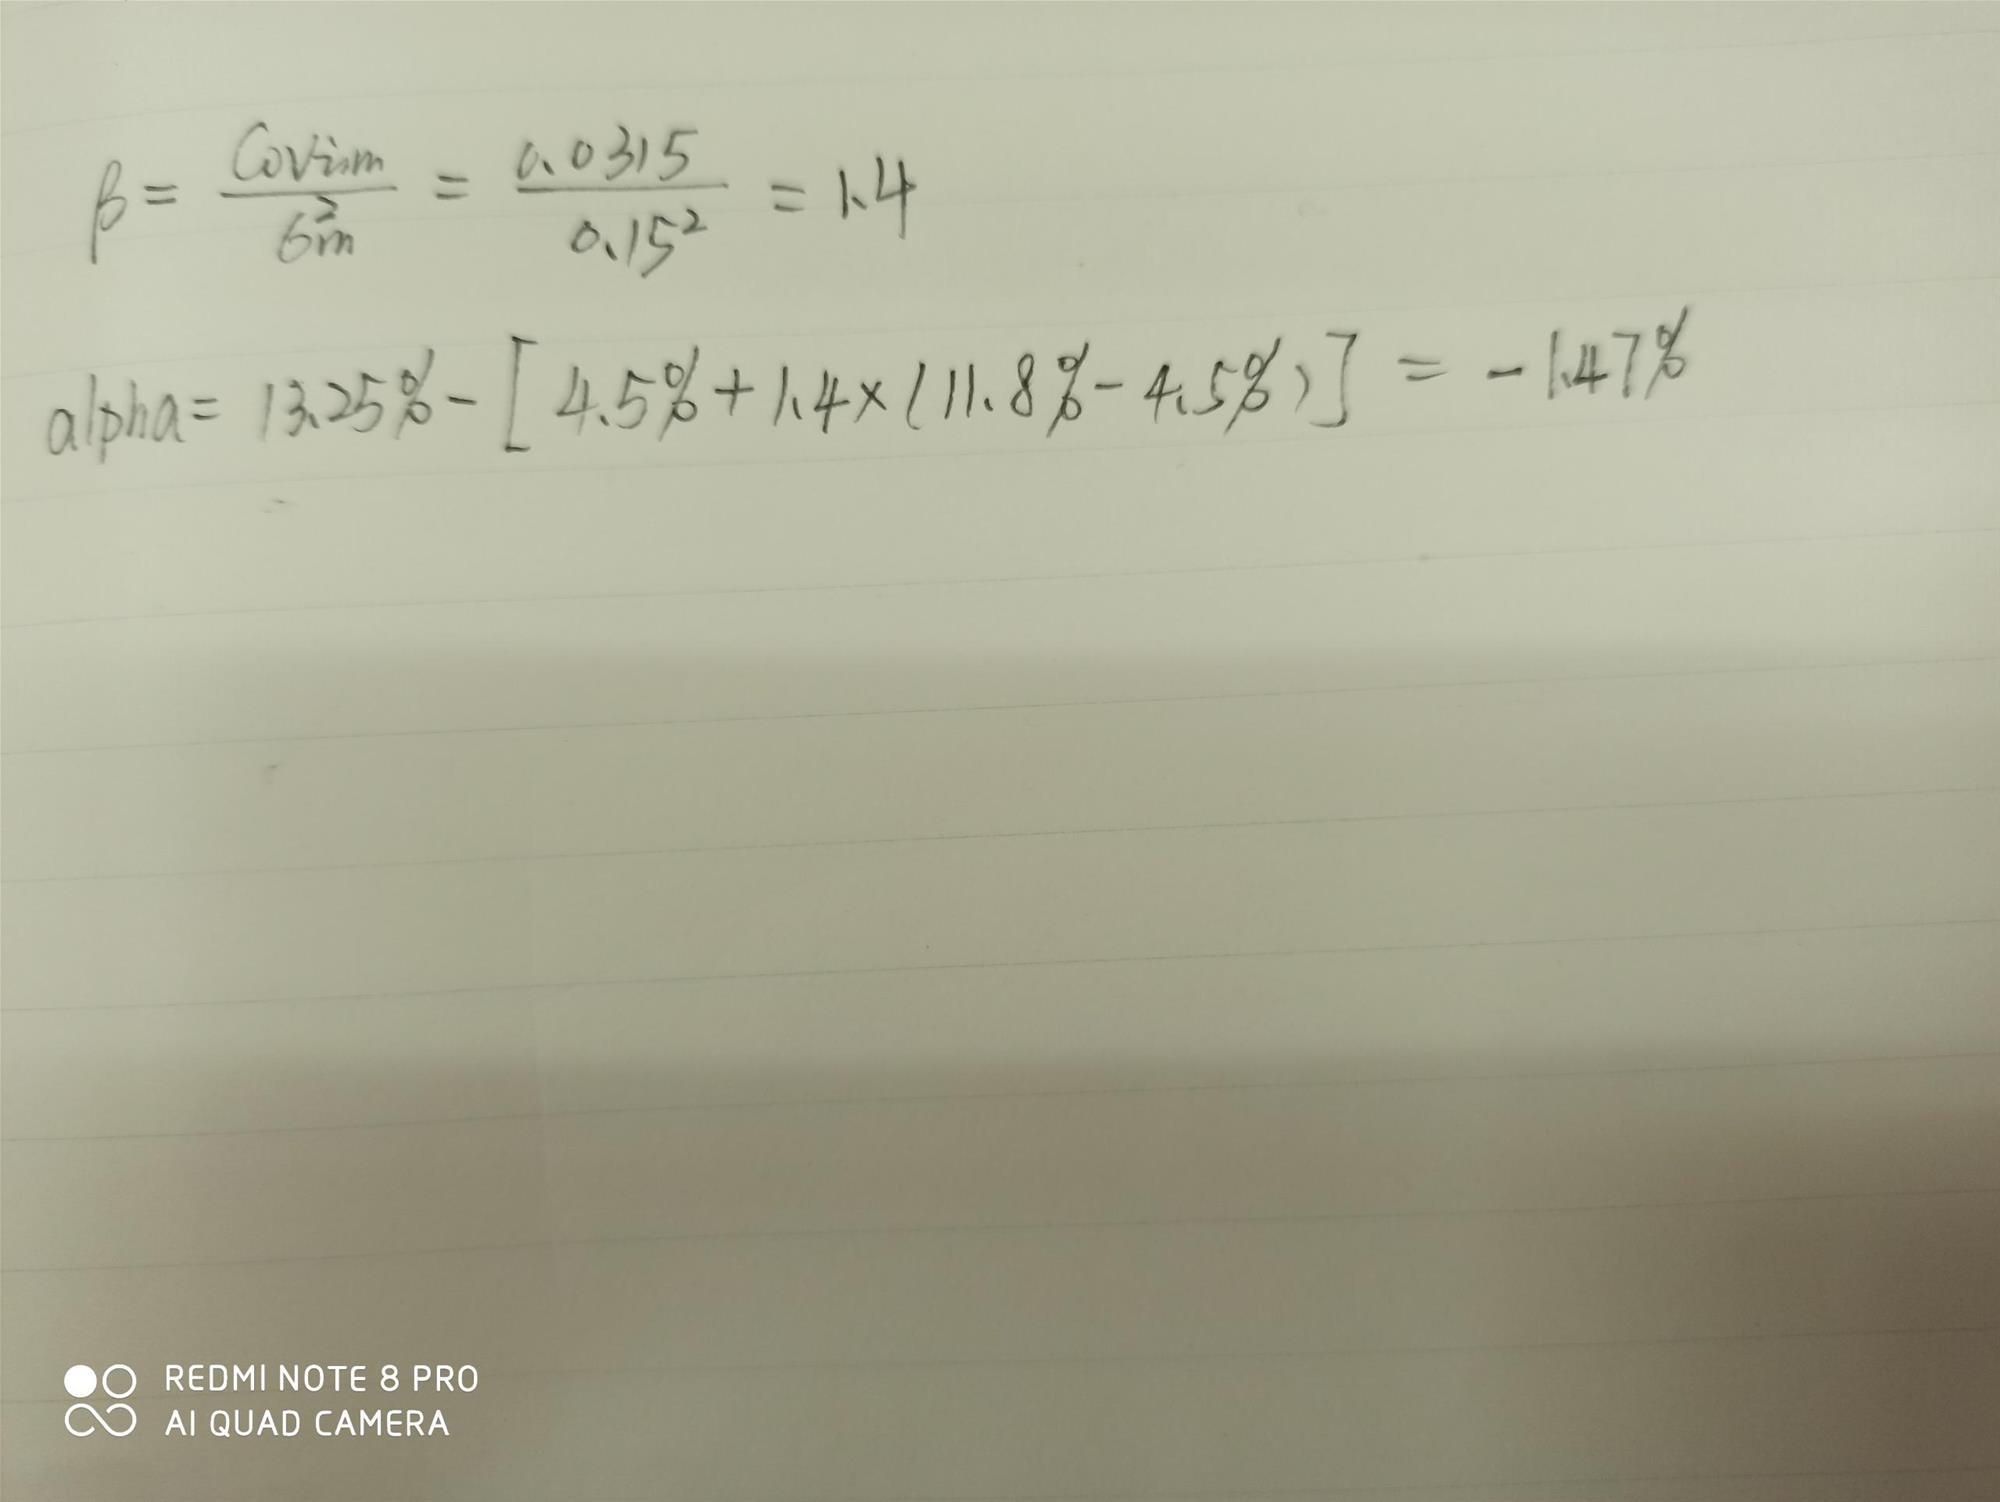 β = Covi,m / σ²m = 0.0315 / 0.15² = 1.4
alpha = 13.25% - [4.5% + 1.4 × (11.8% - 4.5%)] = -1.47%
REDMI NOTE 8 PRO
AI QUAD CAMERA